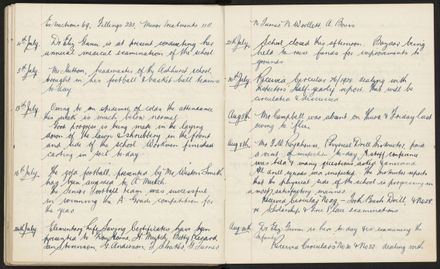 Extractions 69, Fillings 231, Minor Treatments 110.
4th July. Dr Elza Gunn is at present conducting her
annual medical examination of the school
5th July. Mr. headmaster of the Ashhurst school
brought in his football & basket ball teams
to day
10th July. Owing to an epidemic of colds the attendance
this week is much below normal
Good progress is being made in the laying
down of the lawn & shrubbery in the front
and side of the school. Workmen finished
carting in soil to-day
13th July. The 1930 football, presented by Mr. Winston Smith
has been awarded to A. Mutch.
The Senior Football team was successful
in winning the A Grade competition for
the year
20th July. Elementary Life Saving Certificates have been
presented to H. Mutch, Betty
Johnson, G. Anderson, J. James
N James N Woollett. A Brown
21st July. School closed this afternoon. Bazaar being
held to raise funds for improvements to
grounds
Received Circular 26/1935 dealing with
Inspectors half yearly report. This will be
circulated & discussed
Aug 8th Mr Campbell was absent on Thurs & Friday last
owing to flu.
Aug 8th Physical Drill Instructor paid
a visit of inspection to-day. A staff conference
was held & many questions asked & answered
All and grounds was inspected. The Instructor reports
that the physical side of the school is progressing in
a most satisfactory manner.
Received Circulars No 29 & No 28
re Scholarship & Free Place examinations
Dr Elza Gunn is here to day examining the
Received Circulars No 31 & No 32 dealing with